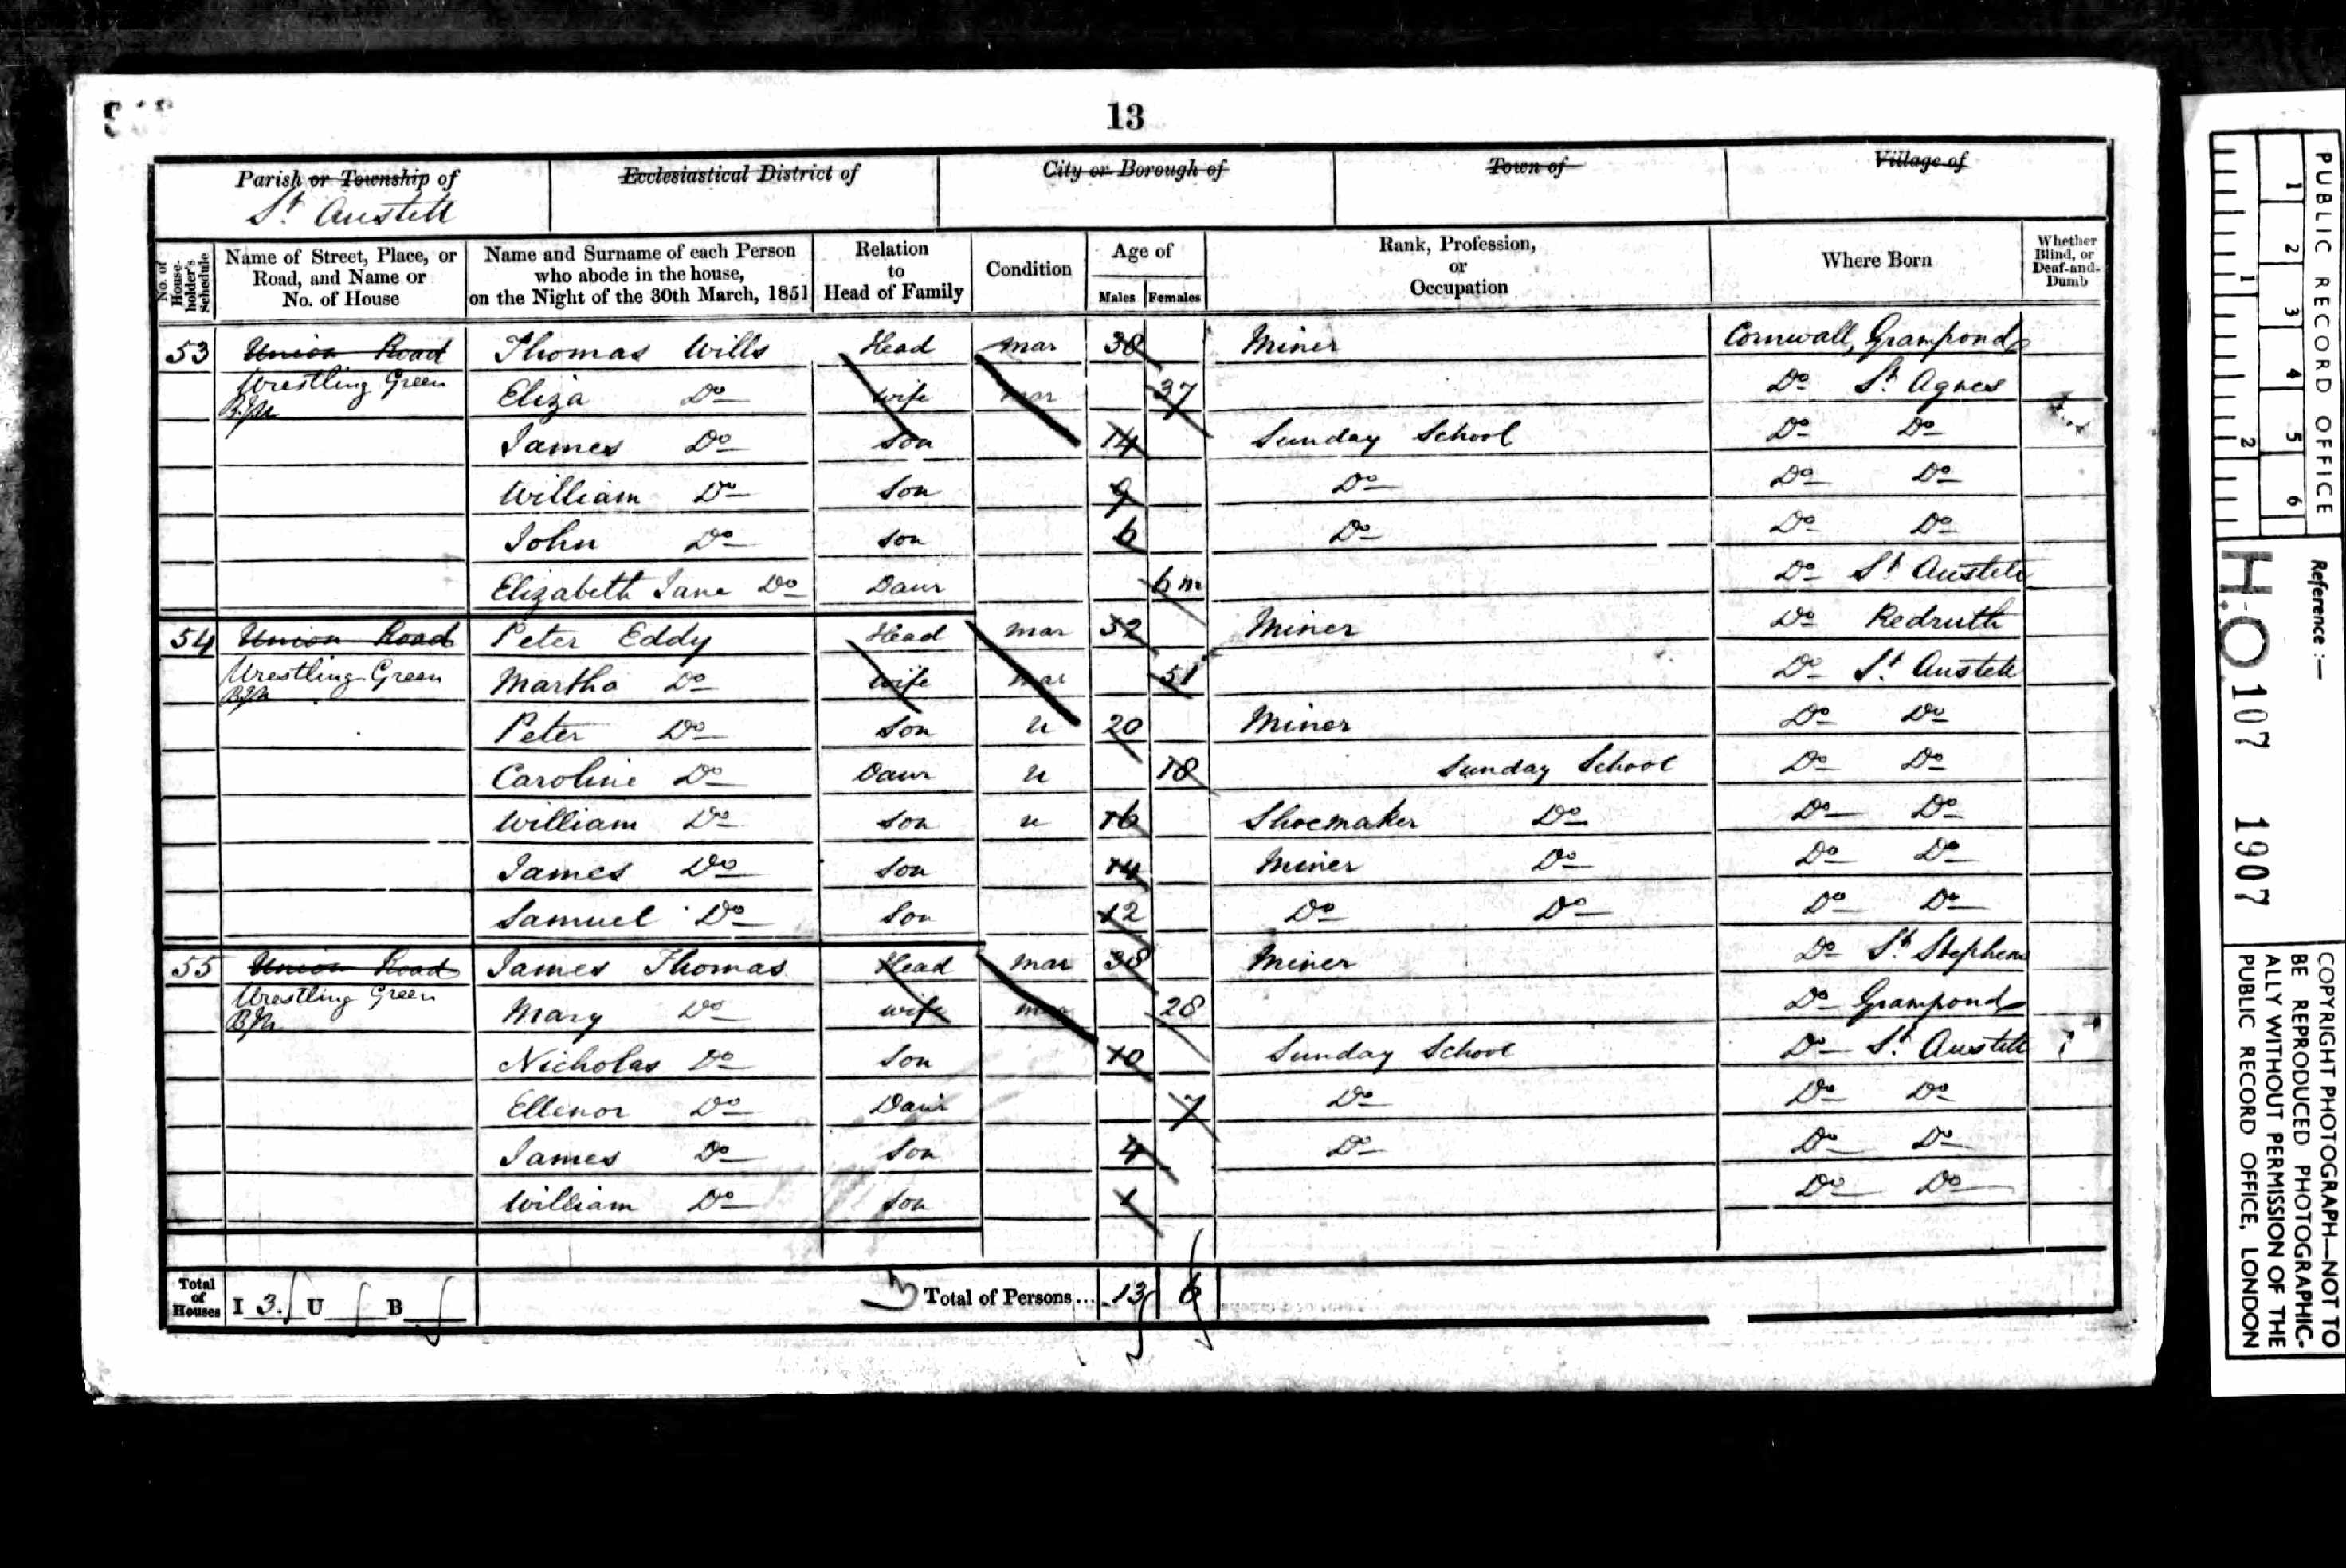 13
Parish or Township of
St. Austell
Ecclesiastical District of
City or Borough of
Town of
Village of
No. of House-holder's Schedule
Name of Street, Place, or Road, and Name or No. of House
Name and Surname of each Person who abode in the house, on the Night of the 30th March, 1851
Relation to Head of Family
Condition
Age of
Males Females
Rank, Profession, or Occupation
Where Born
Whether Blind, or Deaf-and-Dumb
53 Union Road Thomas Wills Head Mar 38 Miner Cornwall, Grampond
Wrestling Green Eliza Do Wife Mar 37 Do St. Agnes
James Do Son 14 Sunday School Do Do
William Do Son 9 Do Do Do
John Do Son 6 Do Do Do
Elizabeth Jane Do Daur 6 m Do St. Austell
54 Union Road Peter Eddy Head Mar 52 Miner Do Redruth
Wrestling Green Martha Do Wife Mar 51 Do St. Austell
Peter Do Son U 20 Miner Do Do
Caroline Do Daur U 18 Sunday School Do Do
William Do Son U 16 Shoemaker Do Do Do
James Do Son 14 Miner Do Do Do
Samuel Do Son 12 Do Do Do Do
55 Union Road James Thomas Head Mar 38 Miner Do St. Stephens
Wrestling Green Mary Do Wife Mar 28 Do Grampond
Nicholas Do Son 10 Sunday School Do St. Austell
Ellenor Do Daur 7 Do Do Do
James Do Son 4 Do Do Do
William Do Son 1 Do Do
Total of Houses I 3. U B Total of Persons... 13 6
PUBLIC RECORD OFFICE
1 2 3 4 5 6
1 2
Reference :—
H.O 107 1907
COPYRIGHT PHOTOGRAPH—NOT TO
BE REPRODUCED PHOTOGRAPHIC-
ALLY WITHOUT PERMISSION OF THE
PUBLIC RECORD OFFICE, LONDON